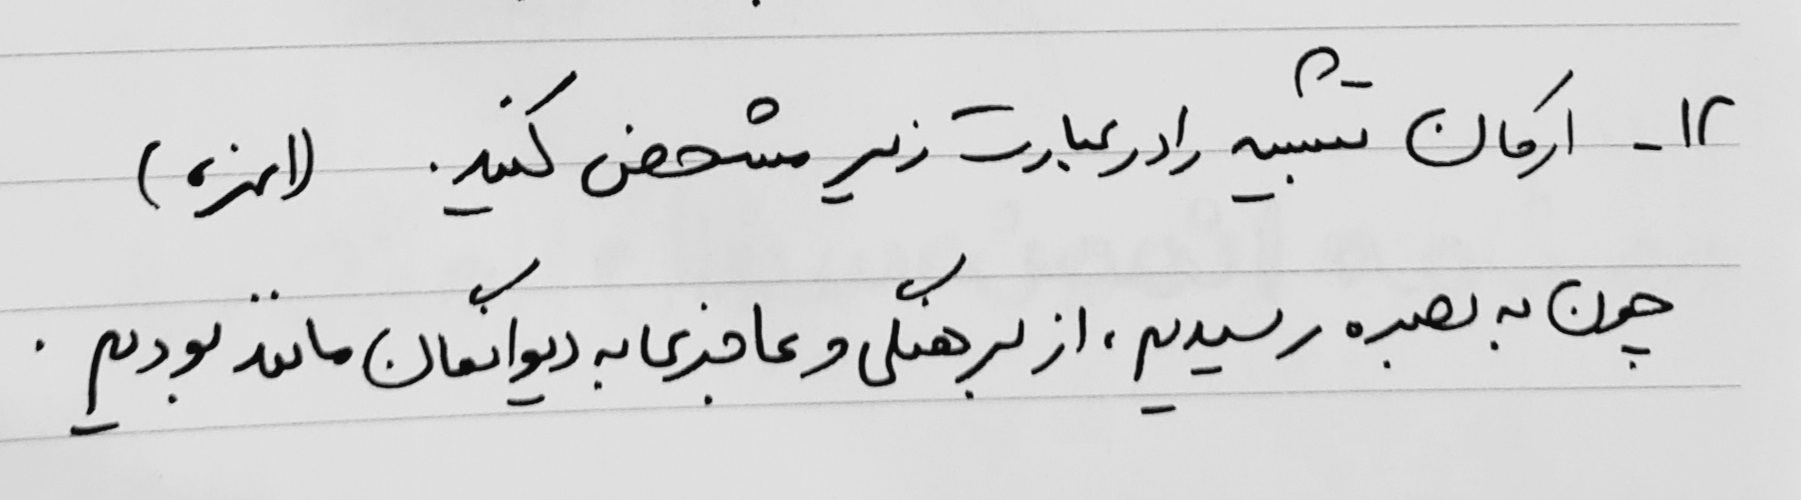 ۱۲- ارکان تشبیه را در عبارت زیر مشخص کنید. (۱نمره)
چون به بصره رسیدیم، از برهنگی و عاجزی به دیوانگان مانند بودیم.